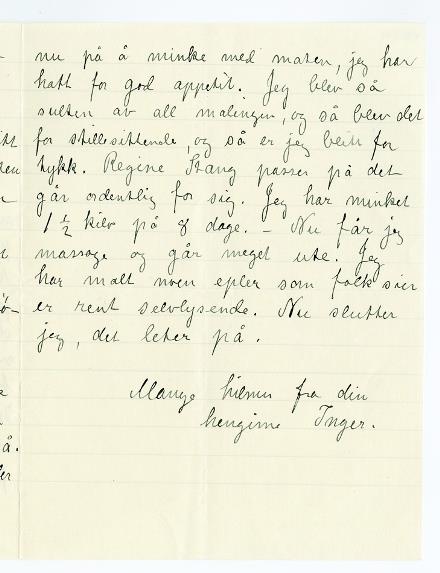 nu på å minke med maten, jeg har
hatt for god appetit. Jeg blev så
sulten av all malingen, og så blev det
for stillesittende, og så er jeg blitt for
tykk. Regine Stang passer på det
går ordentlig for sig. Jeg har minket
1 1/2 kilo på 8 dage. – Nu får jeg
massage og går meget ute. Jeg
har malt noen epler som folk sier
er rent selvlysende. Nu slutter
jeg, det leker på.
Mange hilsner fra din
hengivne Inger.